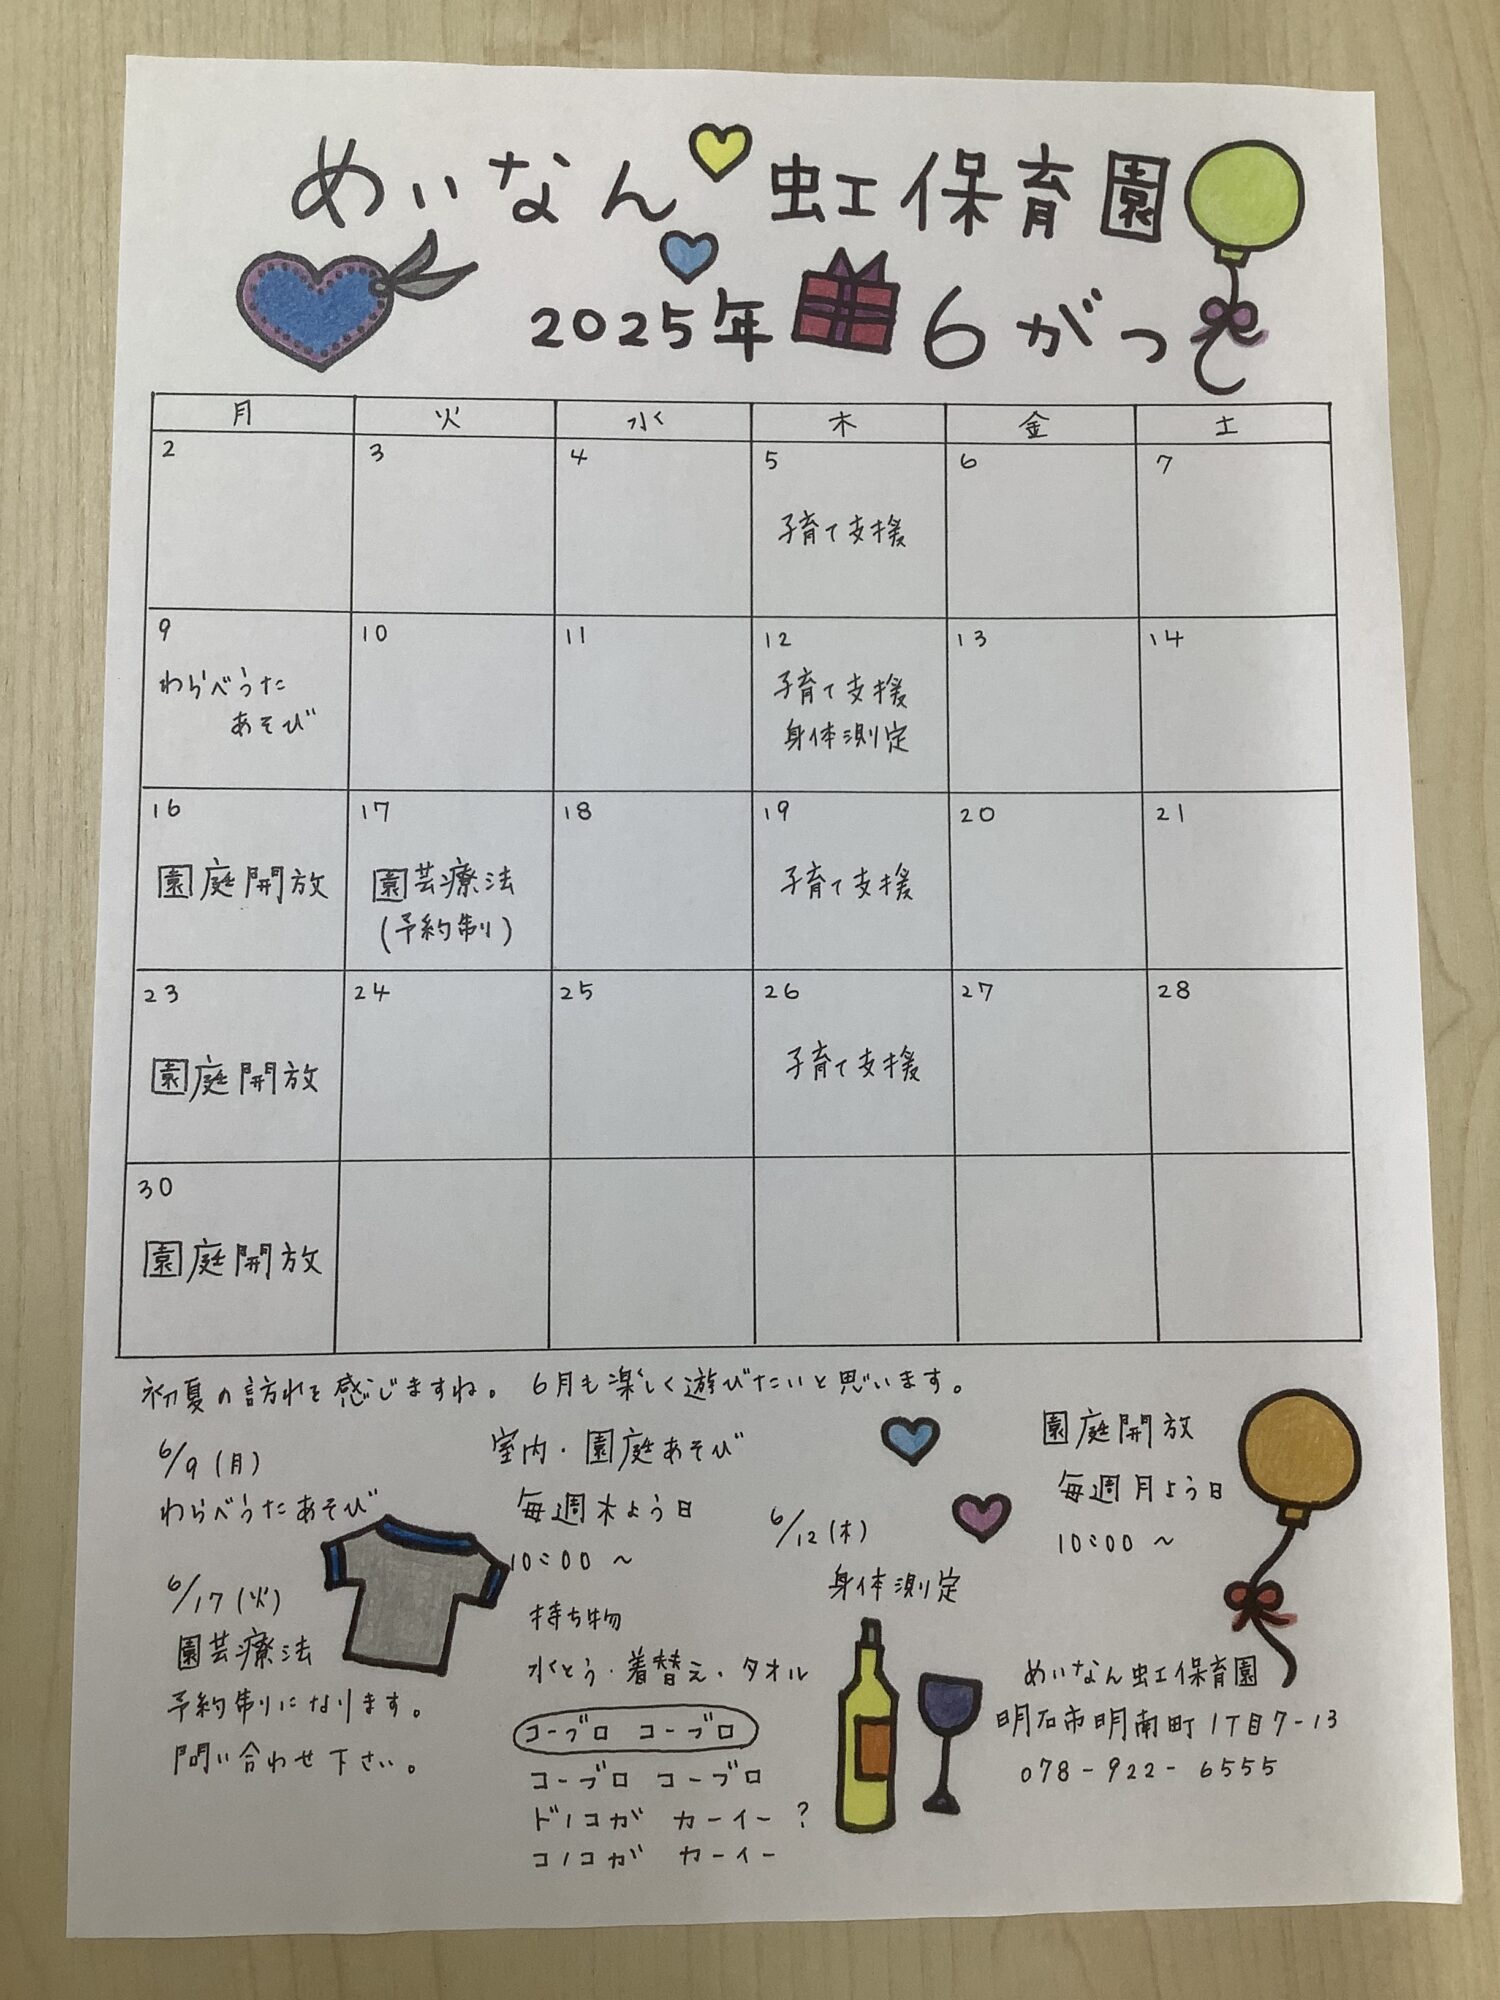 めいなん 虹保育園
2025年 6がつ
月 火 水 木 金 土
2 3 4 5 6 7
子育て支援
9 10 11 12 13 14
わらべうた
あそび
子育て支援
身体測定
16 17 18 19 20 21
園庭開放
園芸療法
(予約制)
子育て支援
23 24 25 26 27 28
園庭開放
子育て支援
30
園庭開放
初夏の訪れを感じますね。 6月も楽しく遊びたいと思います。
6/9(月)
わらべうたあそび
6/17(火)
園芸療法
予約制になります。
問い合わせ下さい。
室内・園庭あそび
毎週木よう日
10:00〜
持ち物
水とう・着替え・タオル
コーブロ コーブロ
コーブロ コーブロ
ドノコガ カーイー?
コノコガ カーイー
6/12(木)
身体測定
園庭開放
毎週月よう日
10:00〜
めいなん虹保育園
明石市明南町1丁目7-13
078-922-6555